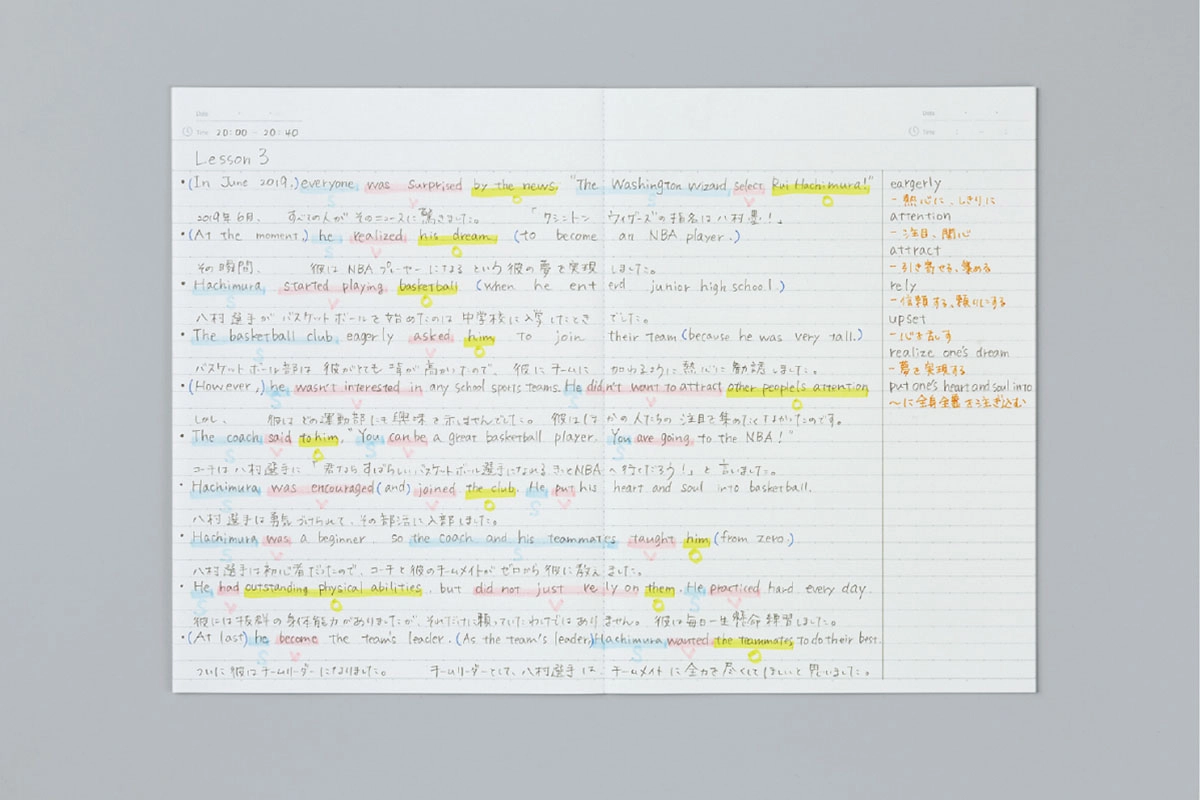 Date
Time 20:00 - 20:40
Date
Time
Lesson 3
・(In June 2019,) everyone was surprised by the news. "The Washington Wizard select Rui Hachimura!"
2019年6月、 すべての人がそのニュースに驚きました。 「ワシントン ウィザーズの指名は八村塁!」
・(At the moment,) he realized his dream (to become an NBA player.)
その瞬間、 彼はNBAプレーヤーになるという彼の夢を実現しました。
・Hachimura started playing basketball (when he enterd junior high school)
八村選手がバスケットボールを始めたのは中学校に入学したときでした。
・The basketball club eagerly asked him to join their team (because he was very tall.)
バスケットボール部は彼がとても背が高かったので、彼にチームに加わるように熱心に勧誘しました。
・(However,) he wasn't interested in any school sports teams. He didn't want to attract other people's attention
しかし、 彼はどの運動部にも興味を示しませんでした。 彼はほかの人たちの注目を集めたくなかったのです。
・The coach said to him, "You can be a great basketball player. You are going to the NBA!"
コーチは八村選手に「君ならすばらしいバスケットボール選手になれる きっとNBAへ行くだろう!」と言いました。
・Hachimura was encouraged (and) joined the club. He put his heart and soul into basketball.
八村選手は勇気づけられて、その部活に入部しました。
・Hachimura was a beginner so the coach and his teammates taught him (from zero.)
八村選手は初心者だったので、コーチと彼のチームメイトがゼロから彼に教えました。
・He had outstanding physical abilities, but did not just relly on them. He practiced hard every day.
彼には抜群の身体能力がありましたが、それだけに頼っていたわけではありません。彼は毎日一生懸命練習しました。
・(At last) he become the team's leader. (As the team's leader,) Hachimura wanted the teammates to do their best.
ついに彼はチームリーダーになりました。 チームリーダーとして、八村選手は、チームメイトに全力を尽くしてほしいと思いました。
eargerly
- 熱心に、しきりに
attention
- 注目、関心
attract
- 引き寄せる、集める
rely
- 信頼する、頼りにする
upset
- 心を乱す
realize one's dream
- 夢を実現する
put one's heart and soul into
〜に全身全霊をそそぎ込む